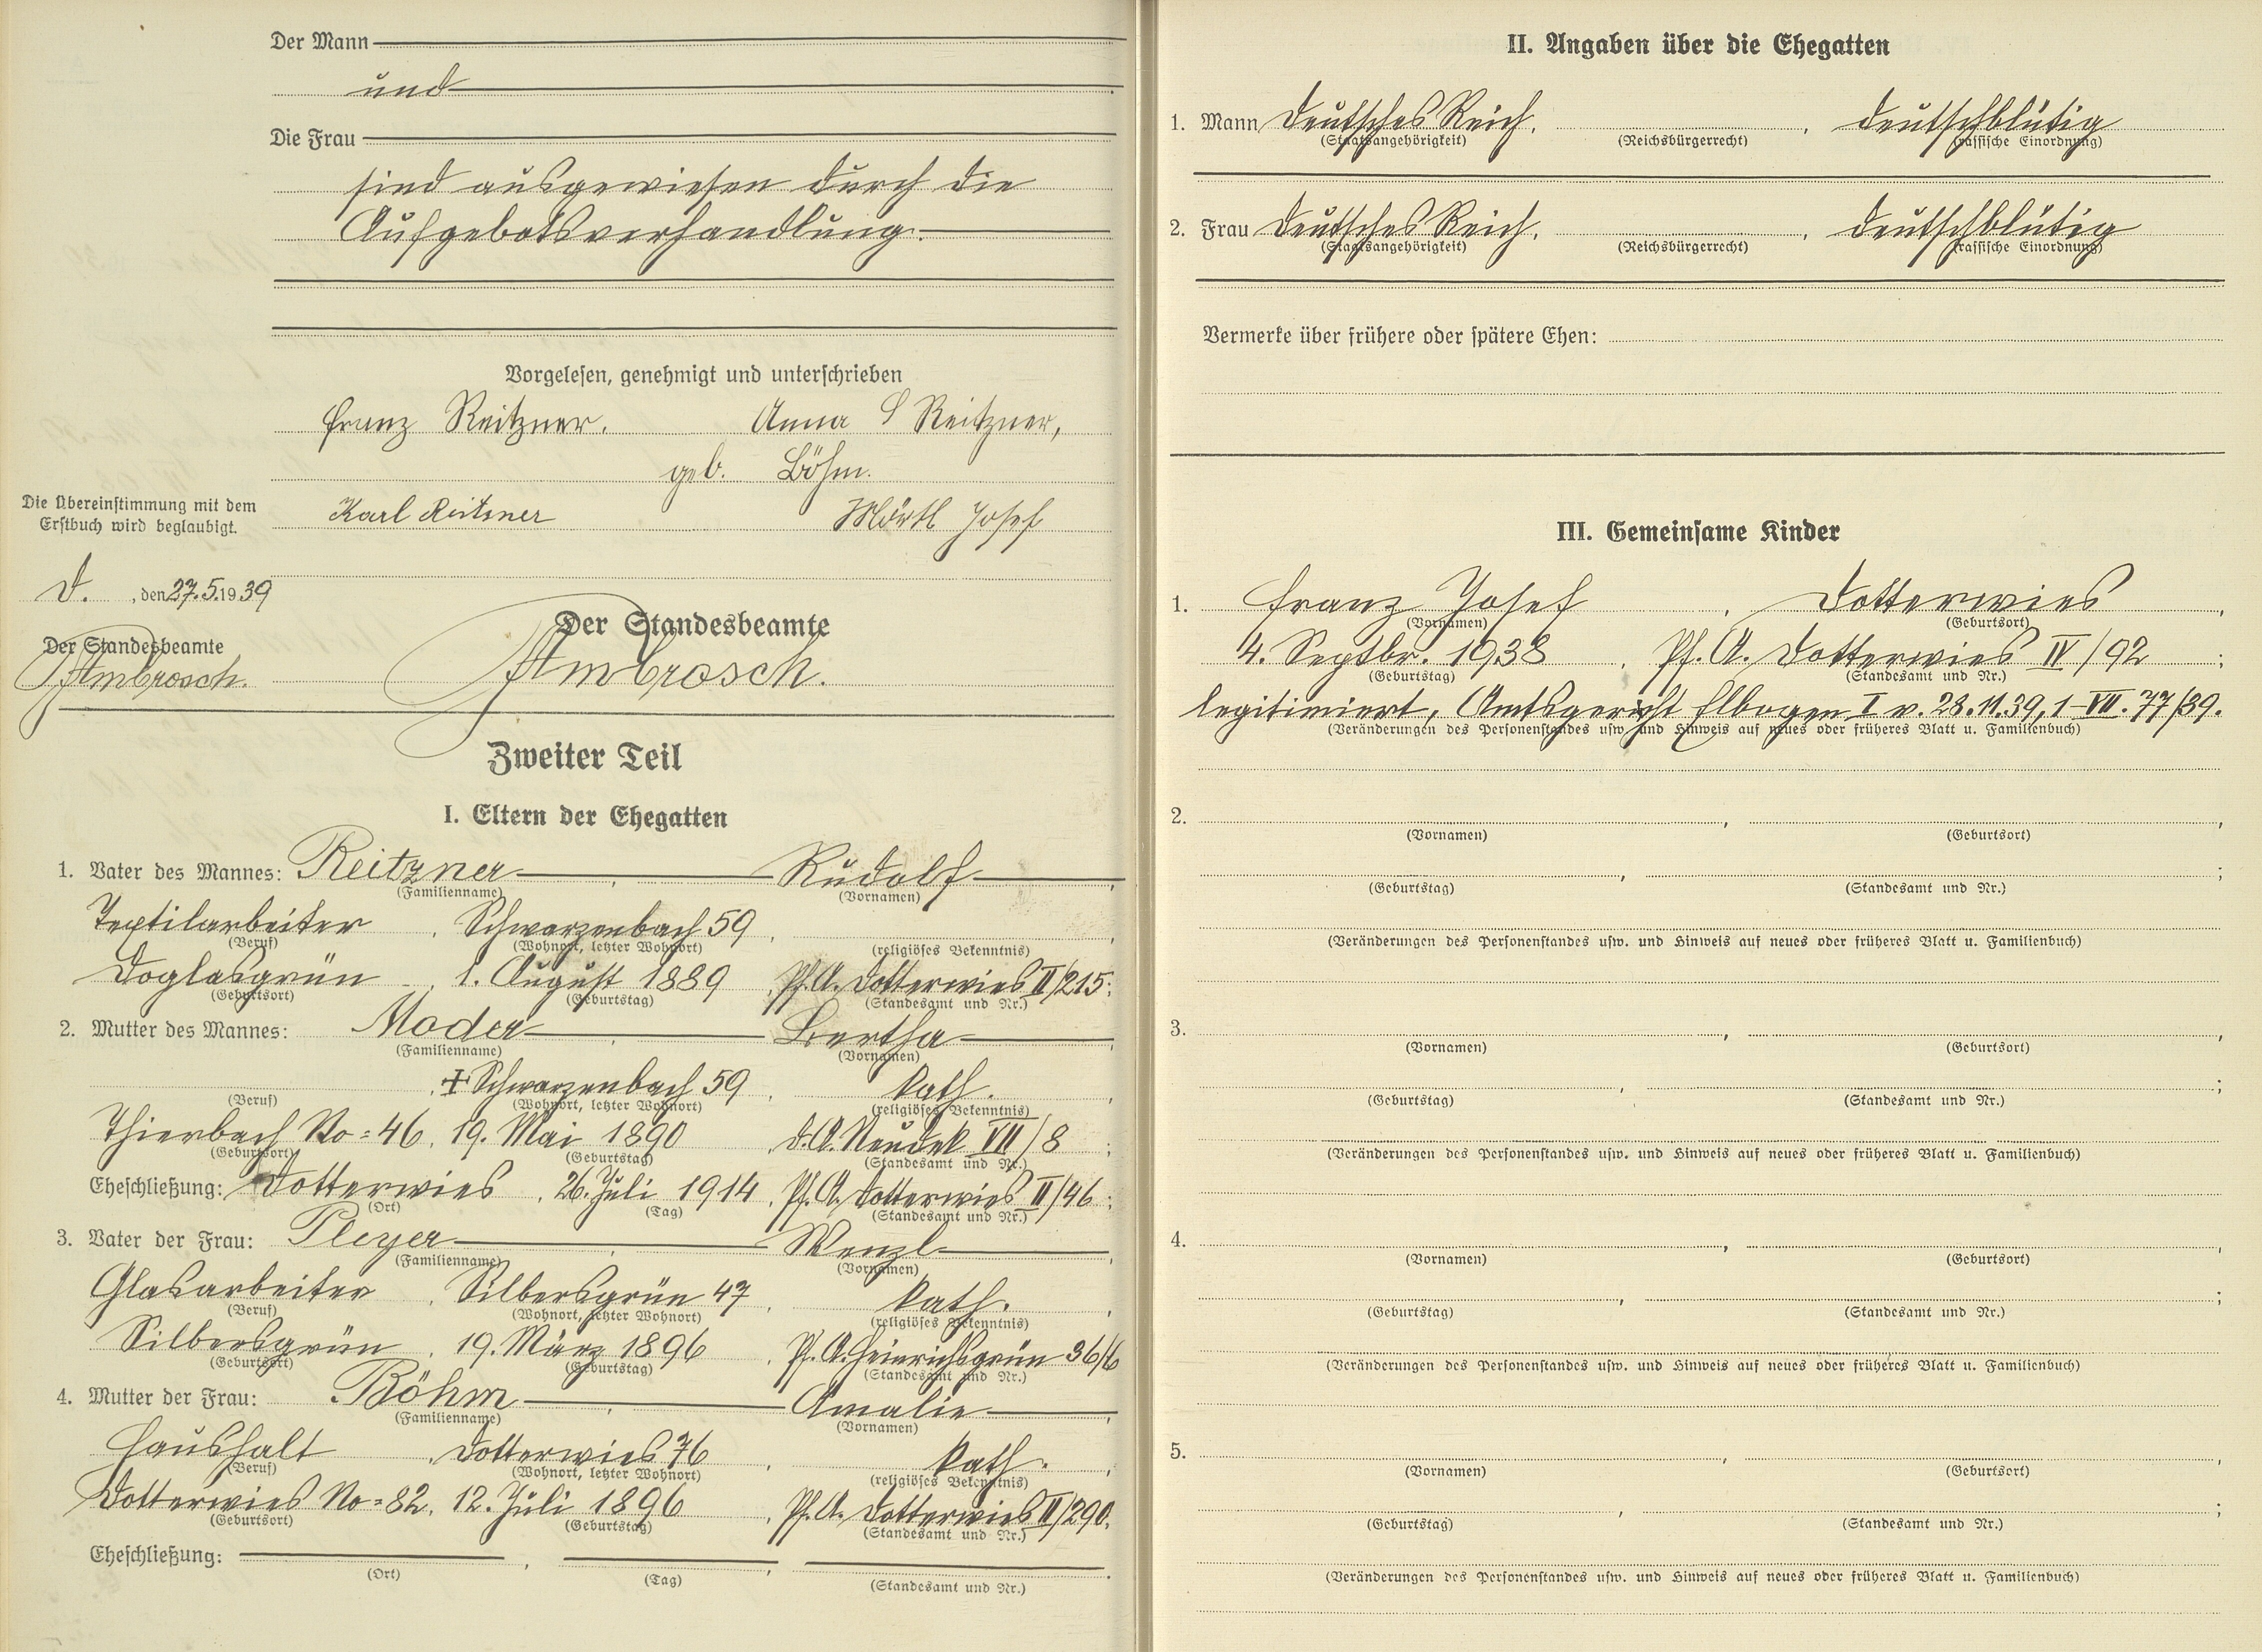 Der Mann
und
Die Frau
sind ausgewiesen durch die
Aufgebotsverhandlung.
Vorgelesen, genehmigt und unterschrieben
Franz Reitzner. Anna Reitzner,
geb. Böhm.
Die Übereinstimmung mit dem
Erstbuch wird beglaubigt.
Karl Reitzner Mörtl Josef
D. , den 27.5.1939
Der Standesbeamte
Ambrosch.
Der Standesbeamte
Ambrosch.
Zweiter Teil
I. Eltern der Ehegatten
1. Vater des Mannes: Reitzner , Rudolf ,
(Familienname) (Vornamen)
Textilarbeiter , Schwarzenbach 59 , ,
(Beruf) (Wohnort, letzter Wohnort) (religiöses Bekenntnis)
Doglasgrün , 1. August 1889 , Pf.A. Dotterwies II/215;
(Geburtsort) (Geburtstag) (Standesamt und Nr.)
2. Mutter des Mannes: Moder , Bertha ,
(Familienname) (Vornamen)
, + Schwarzenbach 59 , kath. ,
(Beruf) (Wohnort, letzter Wohnort) (religiöses Bekenntnis)
Thierbach No=46, 19. Mai 1890 , d.A. Neudek VII/8 ;
(Geburtsort) (Geburtstag) (Standesamt und Nr.)
Eheschließung: Dotterwies , 26. Juli 1914, Pf.A. Dotterwies II/46;
(Ort) (Tag) (Standesamt und Nr.)
3. Vater der Frau: Pleyer , Wenzl ,
(Familienname) (Vornamen)
Glasarbeiter , Silbersgrün 47 , kath. ,
(Beruf) (Wohnort, letzter Wohnort) (religiöses Bekenntnis)
Silbersgrün , 19. März 1896 , Pf.A. Heinrichsgrün 36/6
(Geburtsort) (Geburtstag) (Standesamt und Nr.)
4. Mutter der Frau: Böhm , Amalie ,
(Familienname) (Vornamen)
Haushalt , Dotterwies 76 , kath. ,
(Beruf) (Wohnort, letzter Wohnort) (religiöses Bekenntnis)
Dotterwies No=82, 12. Juli 1896 , Pf.A. Dotterwies II/290.
(Geburtsort) (Geburtstag) (Standesamt und Nr.)
Eheschließung: , , .
(Ort) (Tag) (Standesamt und Nr.)
II. Angaben über die Ehegatten
1. Mann Deutsches Reich, , deutschblütig
(Staatsangehörigkeit) (Reichsbürgerrecht) (rassische Einordnung)
2. Frau Deutsches Reich, , deutschblütig
(Staatsangehörigkeit) (Reichsbürgerrecht) (rassische Einordnung)
Vermerke über frühere oder spätere Ehen:
III. Gemeinsame Kinder
1. Franz Josef , Dotterwies ,
(Vornamen) (Geburtsort)
4. Septbr. 1938 , Pf.A. Dotterwies IV/92 ;
(Geburtstag) (Standesamt und Nr.)
legitimiert, Amtsgericht Elbogen I v. 28.11.39, 1-VII. 77/39.
(Veränderungen des Personenstandes usw. und Hinweis auf neues oder früheres Blatt u. Familienbuch)
2. , ,
(Vornamen) (Geburtsort)
, ;
(Geburtstag) (Standesamt und Nr.)
(Veränderungen des Personenstandes usw. und Hinweis auf neues oder früheres Blatt u. Familienbuch)
3. , ,
(Vornamen) (Geburtsort)
, ;
(Geburtstag) (Standesamt und Nr.)
(Veränderungen des Personenstandes usw. und Hinweis auf neues oder früheres Blatt u. Familienbuch)
4. , ,
(Vornamen) (Geburtsort)
, ;
(Geburtstag) (Standesamt und Nr.)
(Veränderungen des Personenstandes usw. und Hinweis auf neues oder früheres Blatt u. Familienbuch)
5. , ,
(Vornamen) (Geburtsort)
, ;
(Geburtstag) (Standesamt und Nr.)
(Veränderungen des Personenstandes usw. und Hinweis auf neues oder früheres Blatt u. Familienbuch)